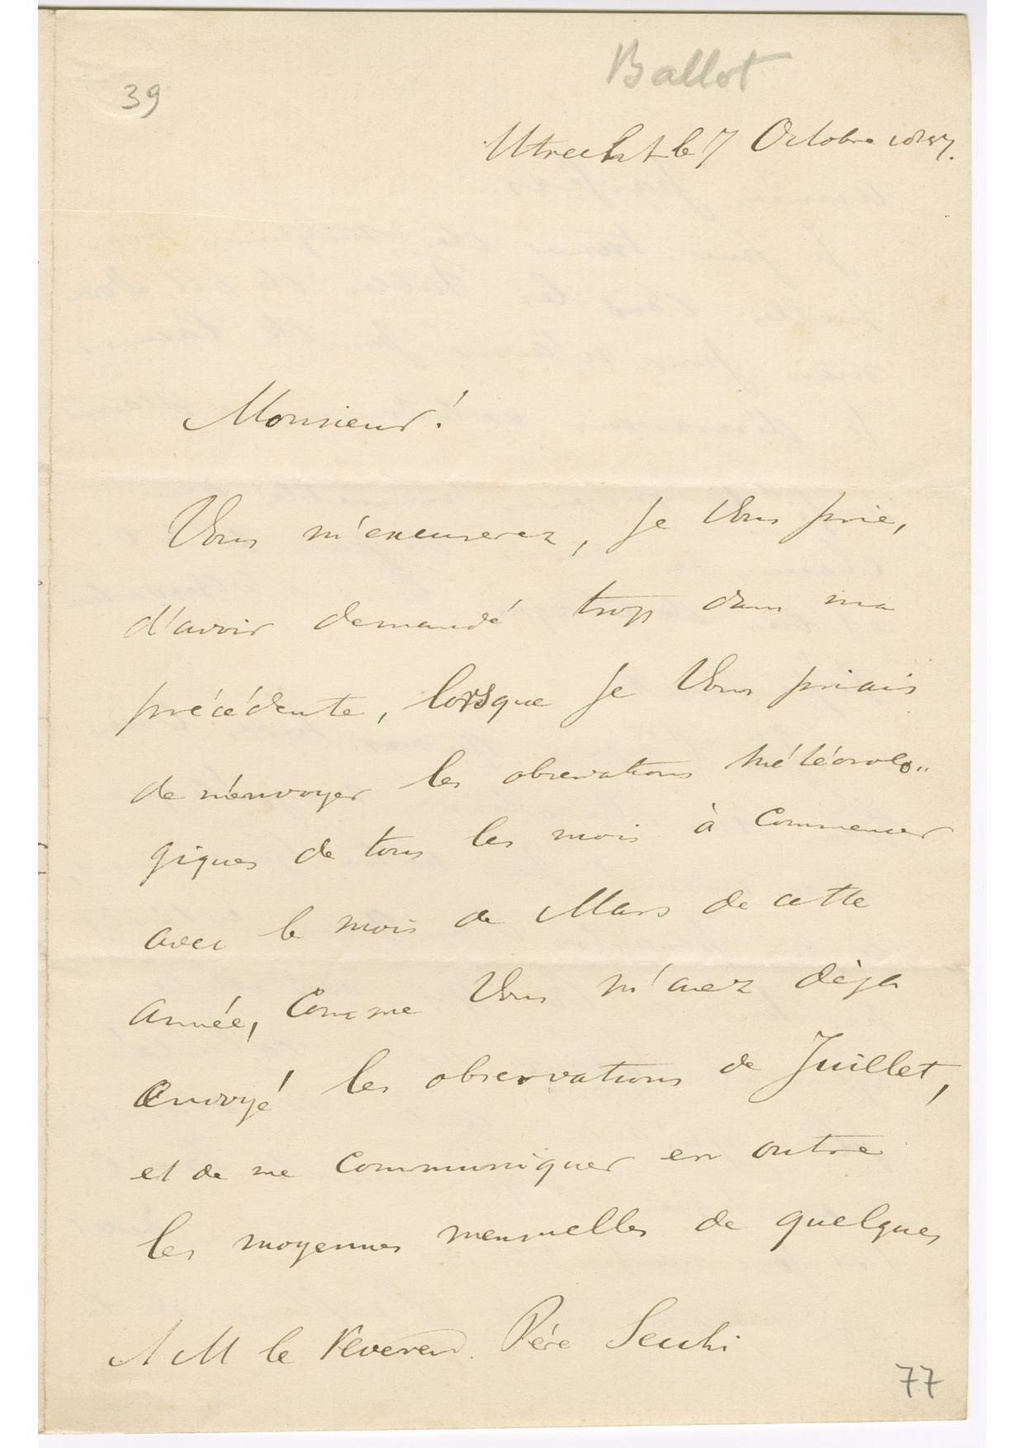 Ballot
39
Utrecht le 7 Octobre 1857.
Monsieur!
Vous m'excuserez, je Vous prie,
d'avoir demandé trop dans ma
précédente, lorsque je Vous priais
de m'envoyer les observations météorolo„
giques de tous les mois à commencer
avec le mois de Mars de cette
année, comme Vous m'avez déja
envoyé les observations de Juillet,
et de me communiquer en outre
les moyennes mensuelles de quelques
A M le Reverend. Père Secchi
77